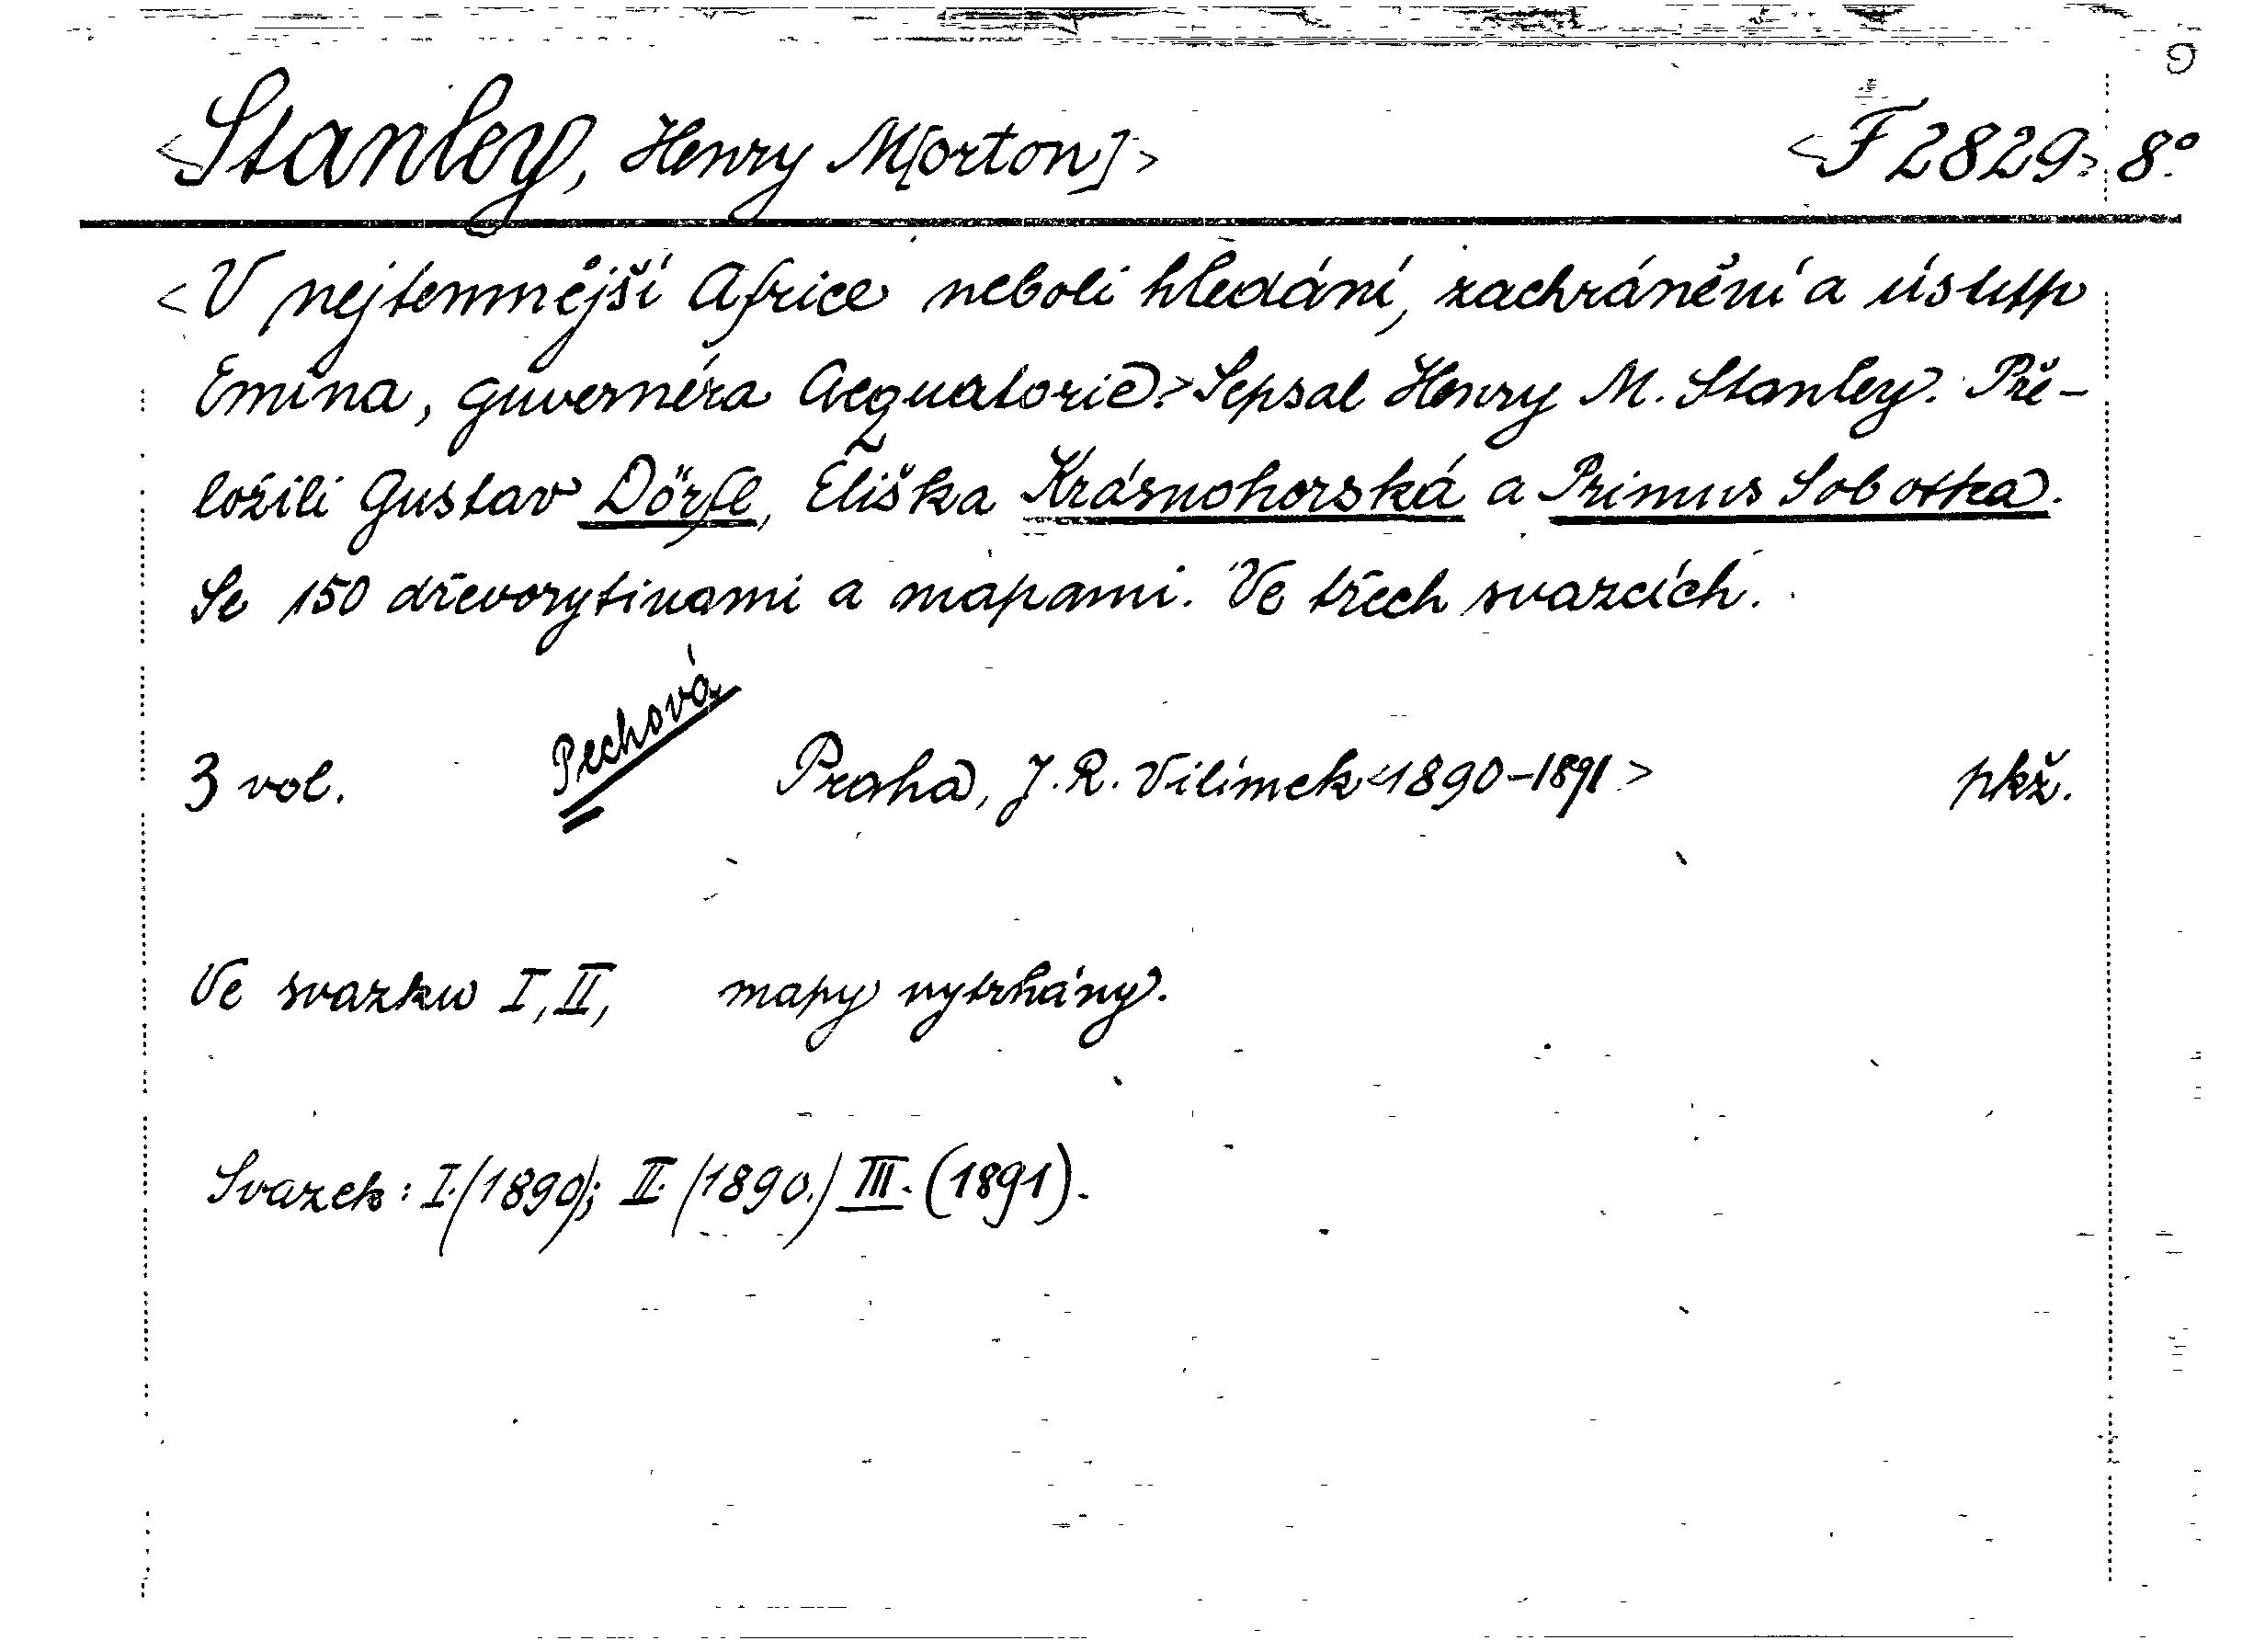 <Stanley, Henry M[orton]> <F 2829> 8°
<V nejtemnější Africe neboli hledání, zachránění a ústup
Emina, guvernéra Aequatorie.> Sepsal Henry M. Stanley. Pře-
ložili Gustav Dörfl, Eliška Krásnohorská a Primus Sobotka.
Se 150 dřevorytinami a mapami. Ve třech svazcích.
Pechová
3 vol. Praha, J. R. Vilímek <1890-1891> pkž.
Ve svazku I, II, mapy vytrhány.
Svazek: I. (1890); II. (1890.) III. (1891).